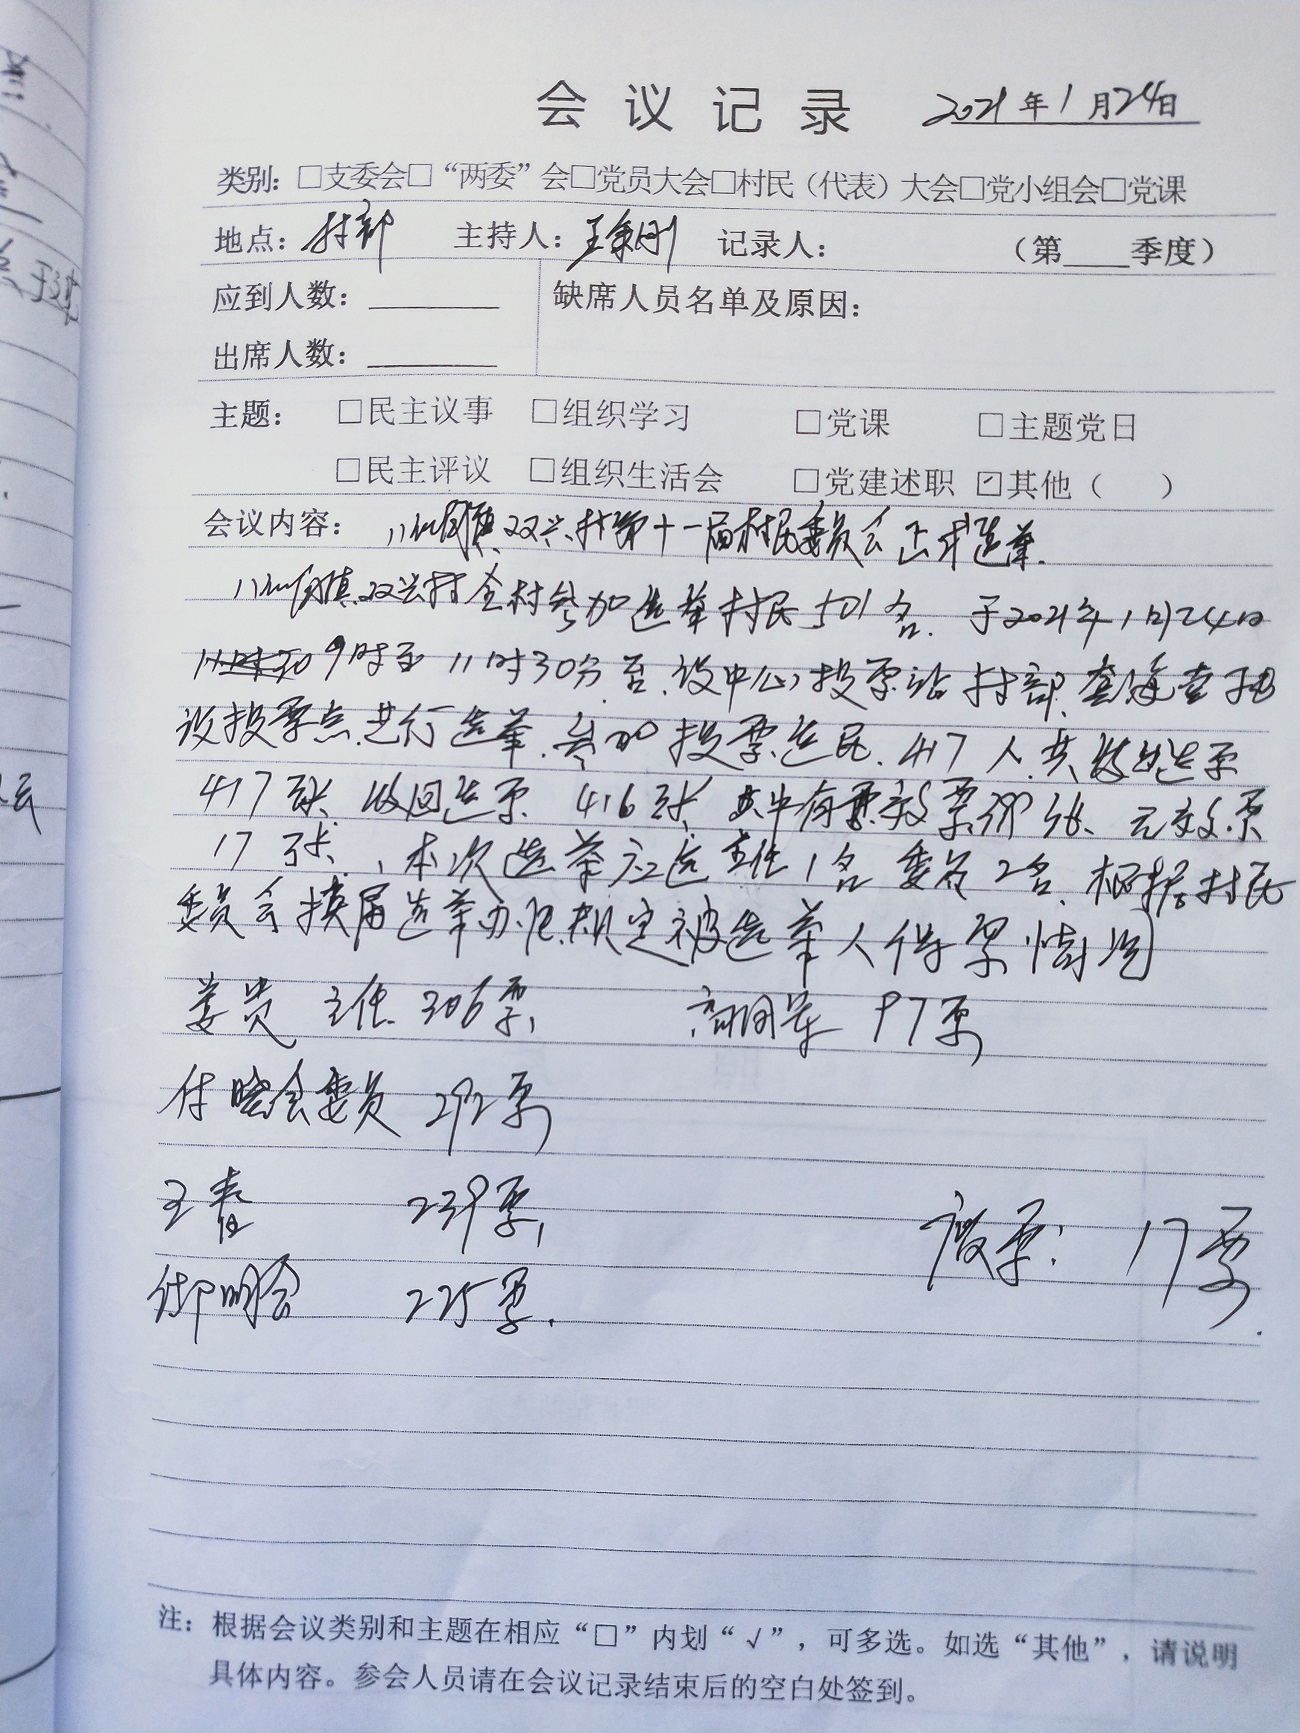 会议记录 2021年1月24日
类别：□支委会□“两委”会□党员大会□村民（代表）大会□党小组会□党课
地点：村部 主持人：王 刚 记录人： （第____季度）
应到人数：______ 缺席人员名单及原因：
出席人数：______
主题： □民主议事 □组织学习 □党课 □主题党日
□民主评议 □组织生活会 □党建述职 ☑其他（ ）
会议内容： 双兴村第十一届村民委员会正式选举.
双兴村全村参加选举村民501名. 于2021年1月24日
9时至11时30分台.设中心投票站村部.
设投票点.进行选举.参加投票选民.417人.共发出选票
417张.收回选票416张.其中有效票399张、无效票
17张.,本次选举应选主任1名委员2名.根据村民
委员会换届选举办法规定被选举人得票情况
姜贵 主任 306票, 97票
付晓会委员 292票
王春 239票,
明会 225票. 废票：17票.
注：根据会议类别和主题在相应“□”内划“√”，可多选。如选“其他”，请说明
具体内容。参会人员请在会议记录结束后的空白处签到。